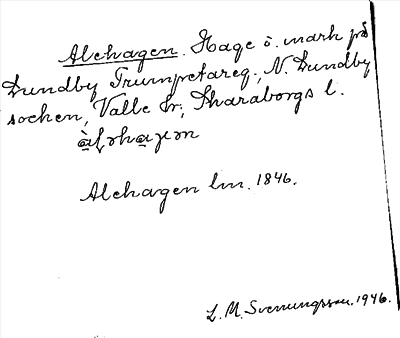 Alehagen. Hage o. mark på
Lundby Trumpetareg., N. Lundby
socken, Valle hr, Skaraborgs l.
Alehagen lm. 1846.
L. M. Svenungsson. 1946.